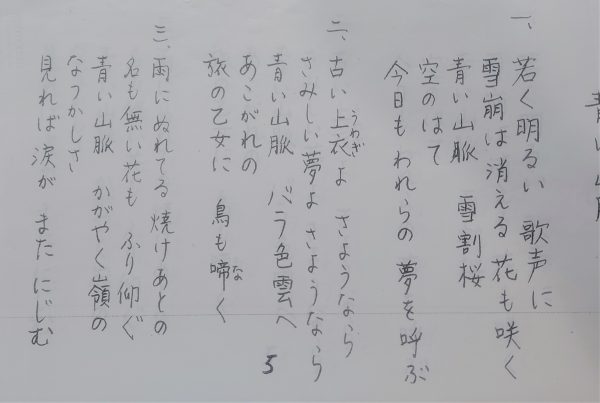 青い山脈
一、若く明るい 歌声に
雪崩は消える 花も咲く
青い山脈 雪割桜
空のはて
今日もわれらの 夢を呼ぶ
二、古い上衣よ さようなら
うわぎ
さみしい夢よ さようなら
青い山脈 バラ色雲へ
あこがれの
旅の乙女に 鳥も啼く
な
三、雨にぬれてる 焼けあとの
名も無い花も ふり仰ぐ
青い山脈 かがやく嶺の
なつかしさ
見れば涙が またにじむ
5